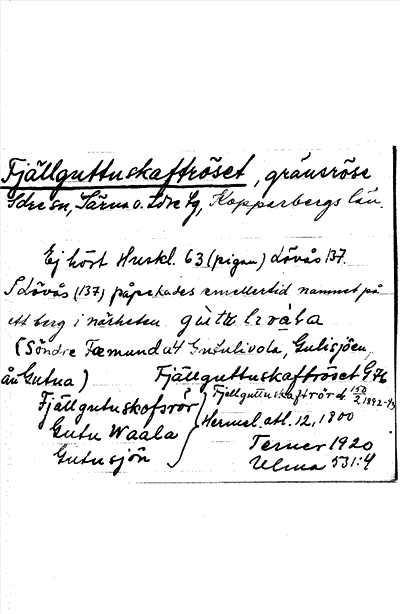 Fjällguttuskaftröset, gränsröse
Idre sn, Särna o. Idre tg, Kopparbergs län.
Ej hört Huskl. 63 (pigan) Lövås 137.
I Lövås (137) påpekades emellertid namnet på
ett berg i närheten
(Söndre Fæmund a4 Gutulivola, Gulisjöen,
ån Gutua) Fjällguttuskaftröset G.K
Fjällgutuskofsrör } Fjellguttuskaftrör d. 150/2 1892-93
Gutu Waala Hermel. atl. 12, 1800
Gutusjön Terner 1920
Ulma 531:4